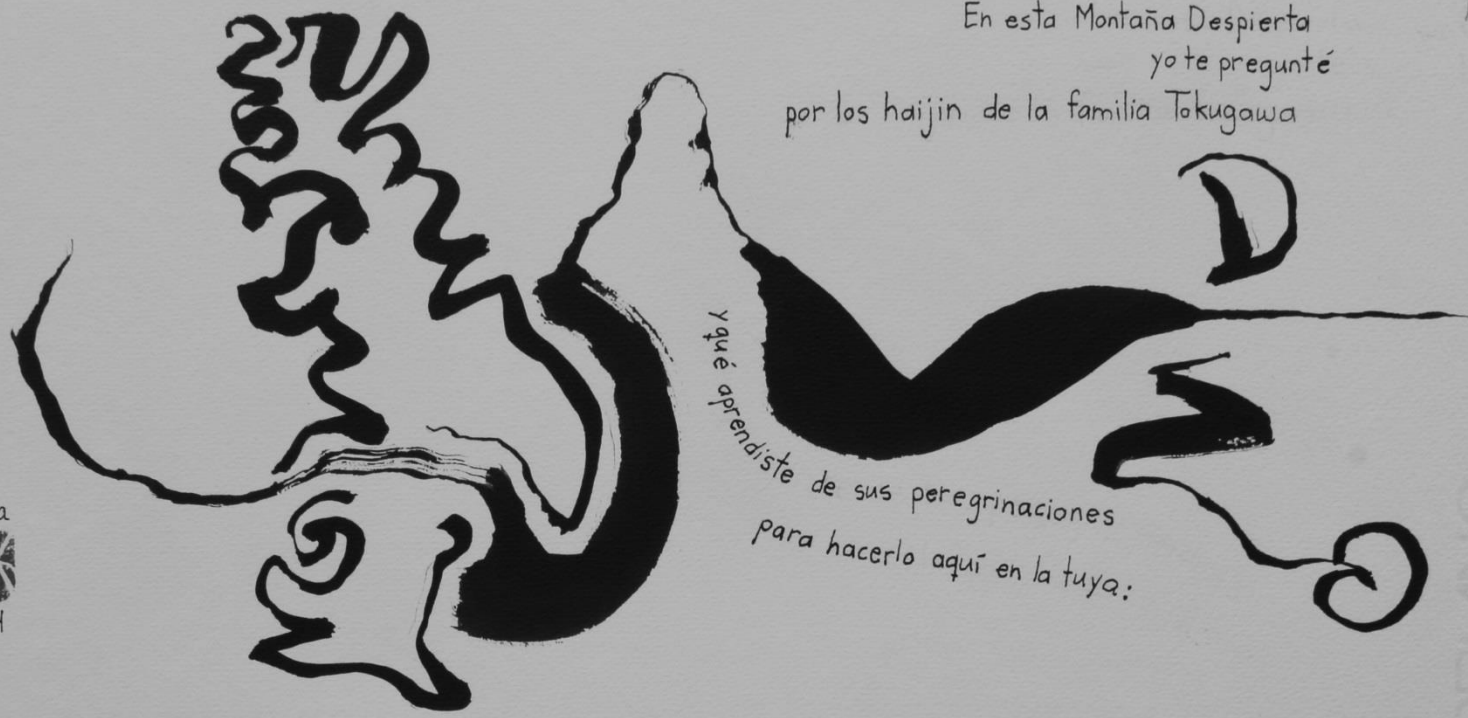 En esta Montaña Despierta
yo te pregunté
por los haijin de la familia Tokugawa
y qué aprendiste de sus peregrinaciones
para hacerlo aquí en la tuya: